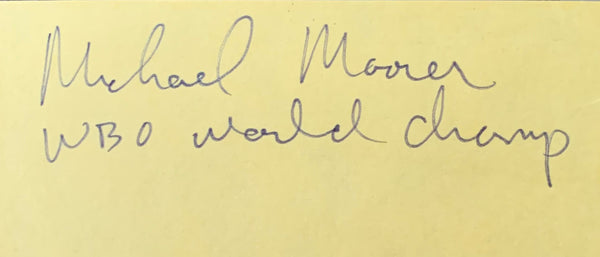 Michael Moorer
WBO world champ